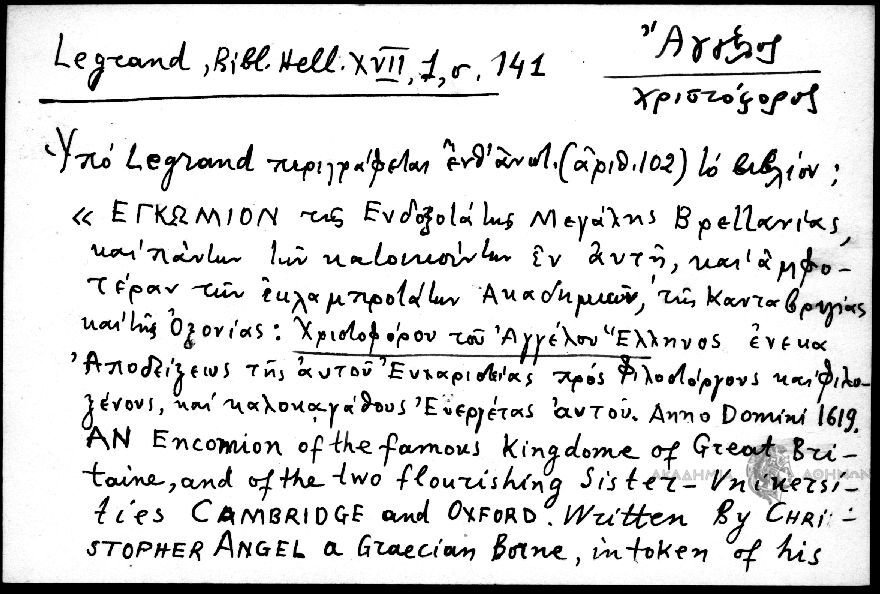 Legrand, Bibl. Hell. XVII, 1, σ. 141
Ἄγγελος
χριστόφορος
Ὑπό Legrand περιγράφεται ἔνθ' ἀνωτ. (ἀριθ. 102) τό βιβλίον:
« ΕΓΚΩΜΙΟΝ τῆς Ενδοξοτάτης Μεγάλης Βρεττανίας,
και πάντων τῶν κατοικούντων ἐν ἀυτῇ, και ἀμφο-
τέραν τῶν ἐκλαμπροτάτων Ακαδημιῶν, τῆς Κανταβρυγίας
και τῆς Ὀξονίας: Χριστοφόρου τοῦ Ἀγγέλου Ἕλληνος ἕνεκα
Ἀποδείξεως τῆς ἀυτοῦ Ἐυχαριστείας πρός Φιλοστόργους και φιλο-
ξένους, και καλοκαγάθους Ἐυεργέτας ἀυτοῦ. Anno Domini 1619.
AN Encomion of the famous Kingdome of Great Bri-
taine, and of the two flourishing Sister-Vniuersi-
ties CAMBRIDGE and OXFORD. Written By CHRI-
STOPHER ANGEL a Graecian Borne, in token of his
ΑΚΑΔΗΜΙΑ ΑΘΗΝΩΝ